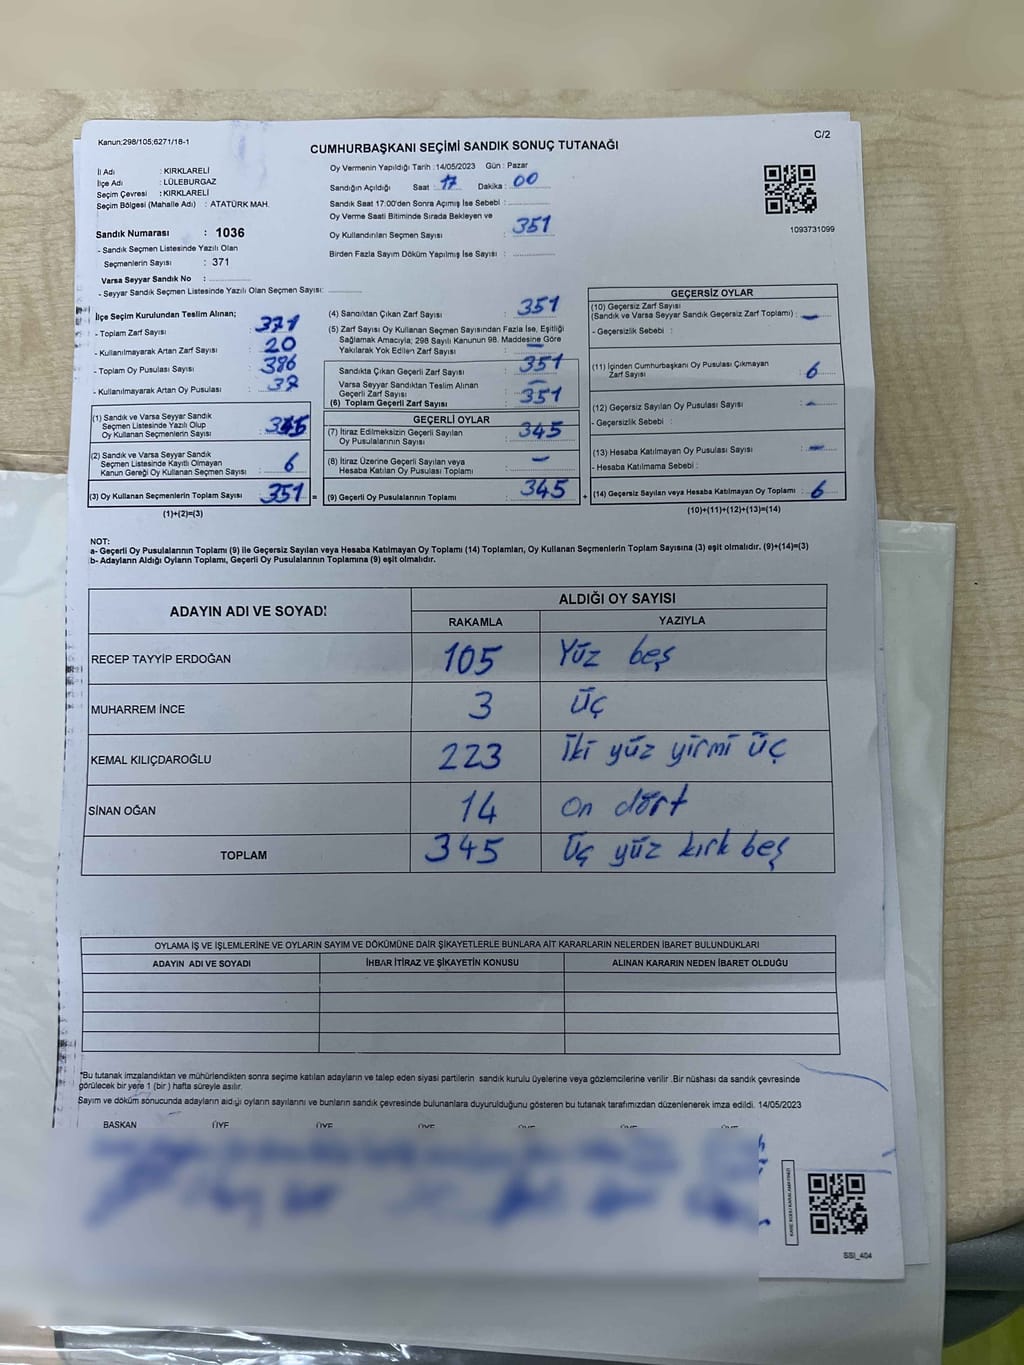 Kanun;298/105;6271/18-1
C/2
CUMHURBAŞKANI SEÇİMİ SANDIK SONUÇ TUTANAĞI
İl Adı : KIRKLARELİ
İlçe Adı : LÜLEBURGAZ
Seçim Çevresi : KIRKLARELİ
Seçim Bölgesi (Mahalle Adı) : ATATÜRK MAH.
Sandık Numarası : 1036
- Sandık Seçmen Listesinde Yazılı Olan
Seçmenlerin Sayısı : 371
Varsa Seyyar Sandık No :
- Seyyar Sandık Seçmen Listesinde Yazılı Olan Seçmen Sayısı:
Oy Vermenin Yapıldığı Tarih :14/05/2023 Gün : Pazar
Sandığın Açıldığı Saat : 17 Dakika : 00
Sandık Saat 17:00'den Sonra Açımış İse Sebebi :
Oy Verme Saati Bitiminde Sırada Bekleyen ve
Oy Kullandırılan Seçmen Sayısı : 351
Birden Fazla Sayım Döküm Yapılmış İse Sayısı :
1093731099
İlçe Seçim Kurulundan Teslim Alınan;
- Toplam Zarf Sayısı : 371
- Kullanılmayarak Artan Zarf Sayısı : 20
- Toplam Oy Pusulası Sayısı : 386
- Kullanılmayarak Artan Oy Pusulası :
(1) Sandık ve Varsa Seyyar Sandık
Seçmen Listesinde Yazılı Olup
Oy Kullanan Seçmenlerin Sayısı : 345
(2) Sandık ve Varsa Seyyar Sandık
Seçmen Listesinde Kayıtlı Olmayan
Kanun Gereği Oy Kullanan Seçmen Sayısı : 6
(3) Oy Kullanan Seçmenlerin Toplam Sayısı : 351 =
(1)+(2)=(3)
(4) Sandıktan Çıkan Zarf Sayısı : 351
(5) Zarf Sayısı Oy Kullanan Seçmen Sayısından Fazla İse, Eşitliği
Sağlamak Amacıyla; 298 Sayılı Kanunun 98. Maddesine Göre
Yakılarak Yok Edilen Zarf Sayısı : –
Sandıkta Çıkan Geçerli Zarf Sayısı : 351
Varsa Seyyar Sandıktan Teslim Alınan
Geçerli Zarf Sayısı : –
(6) Toplam Geçerli Zarf Sayısı : 351
GEÇERLİ OYLAR
(7) İtiraz Edilmeksizin Geçerli Sayılan
Oy Pusulalarının Sayısı : 345
(8) İtiraz Üzerine Geçerli Sayılan veya
Hesaba Katılan Oy Pusulası Toplamı : –
(9) Geçerli Oy Pusulalarının Toplamı : 345 +
GEÇERSİZ OYLAR
(10) Geçersiz Zarf Sayısı
(Sandık ve Varsa Seyyar Sandık Geçersiz Zarf Toplamı) : –
- Geçersizlik Sebebi :
(11) İçinden Cumhurbaşkanı Oy Pusulası Çıkmayan
Zarf Sayısı : 6
(12) Geçersiz Sayılan Oy Pusulası Sayısı : –
- Geçersizlik Sebebi :
(13) Hesaba Katılmayan Oy Pusulası Sayısı : –
- Hesaba Katılmama Sebebi :
(14) Geçersiz Sayılan veya Hesaba Katılmayan Oy Toplamı : 6
(10)+(11)+(12)+(13)=(14)
NOT:
a- Geçerli Oy Pusulalarının Toplamı (9) ile Geçersiz Sayılan veya Hesaba Katılmayan Oy Toplamı (14) Toplamları, Oy Kullanan Seçmenlerin Toplam Sayısına (3) eşit olmalıdır. (9)+(14)=(3)
b- Adayların Aldığı Oyların Toplamı, Geçerli Oy Pusulalarının Toplamına (9) eşit olmalıdır.
ADAYIN ADI VE SOYADI ALDIĞI OY SAYISI
RAKAMLA YAZIYLA
RECEP TAYYİP ERDOĞAN 105 Yüz beş
MUHARREM İNCE 3 Üç
KEMAL KILIÇDAROĞLU 223 İki yüz yirmi üç
SİNAN OĞAN 14 On dört
TOPLAM 345 Üç yüz kırk beş
OYLAMA İŞ VE İŞLEMLERİNE VE OYLARIN SAYIM VE DÖKÜMÜNE DAİR ŞİKAYETLERLE BUNLARA AİT KARARLARIN NELERDEN İBARET BULUNDUKLARI
ADAYIN ADI VE SOYADI İHBAR İTİRAZ VE ŞİKAYETİN KONUSU ALINAN KARARIN NEDEN İBARET OLDUĞU
*Bu tutanak imzalandıktan ve mühürlendikten sonra seçime katılan adayların ve talep eden siyasi partilerin sandık kurulu üyelerine veya gözlemcilerine verilir .Bir nüshası da sandık çevresinde
görülecek bir yere 1 (bir ) hafta süreyle asılır.
Sayım ve döküm sonucunda adayların aldığı oyların sayılarını ve bunların sandık çevresinde bulunanlara duyurulduğunu gösteren bu tutanak tarafımızdan düzenlenerek imza edildi. 14/05/2023
BAŞKAN ÜYE ÜYE ÜYE ÜYE ÜYE ÜYE
SSI_404